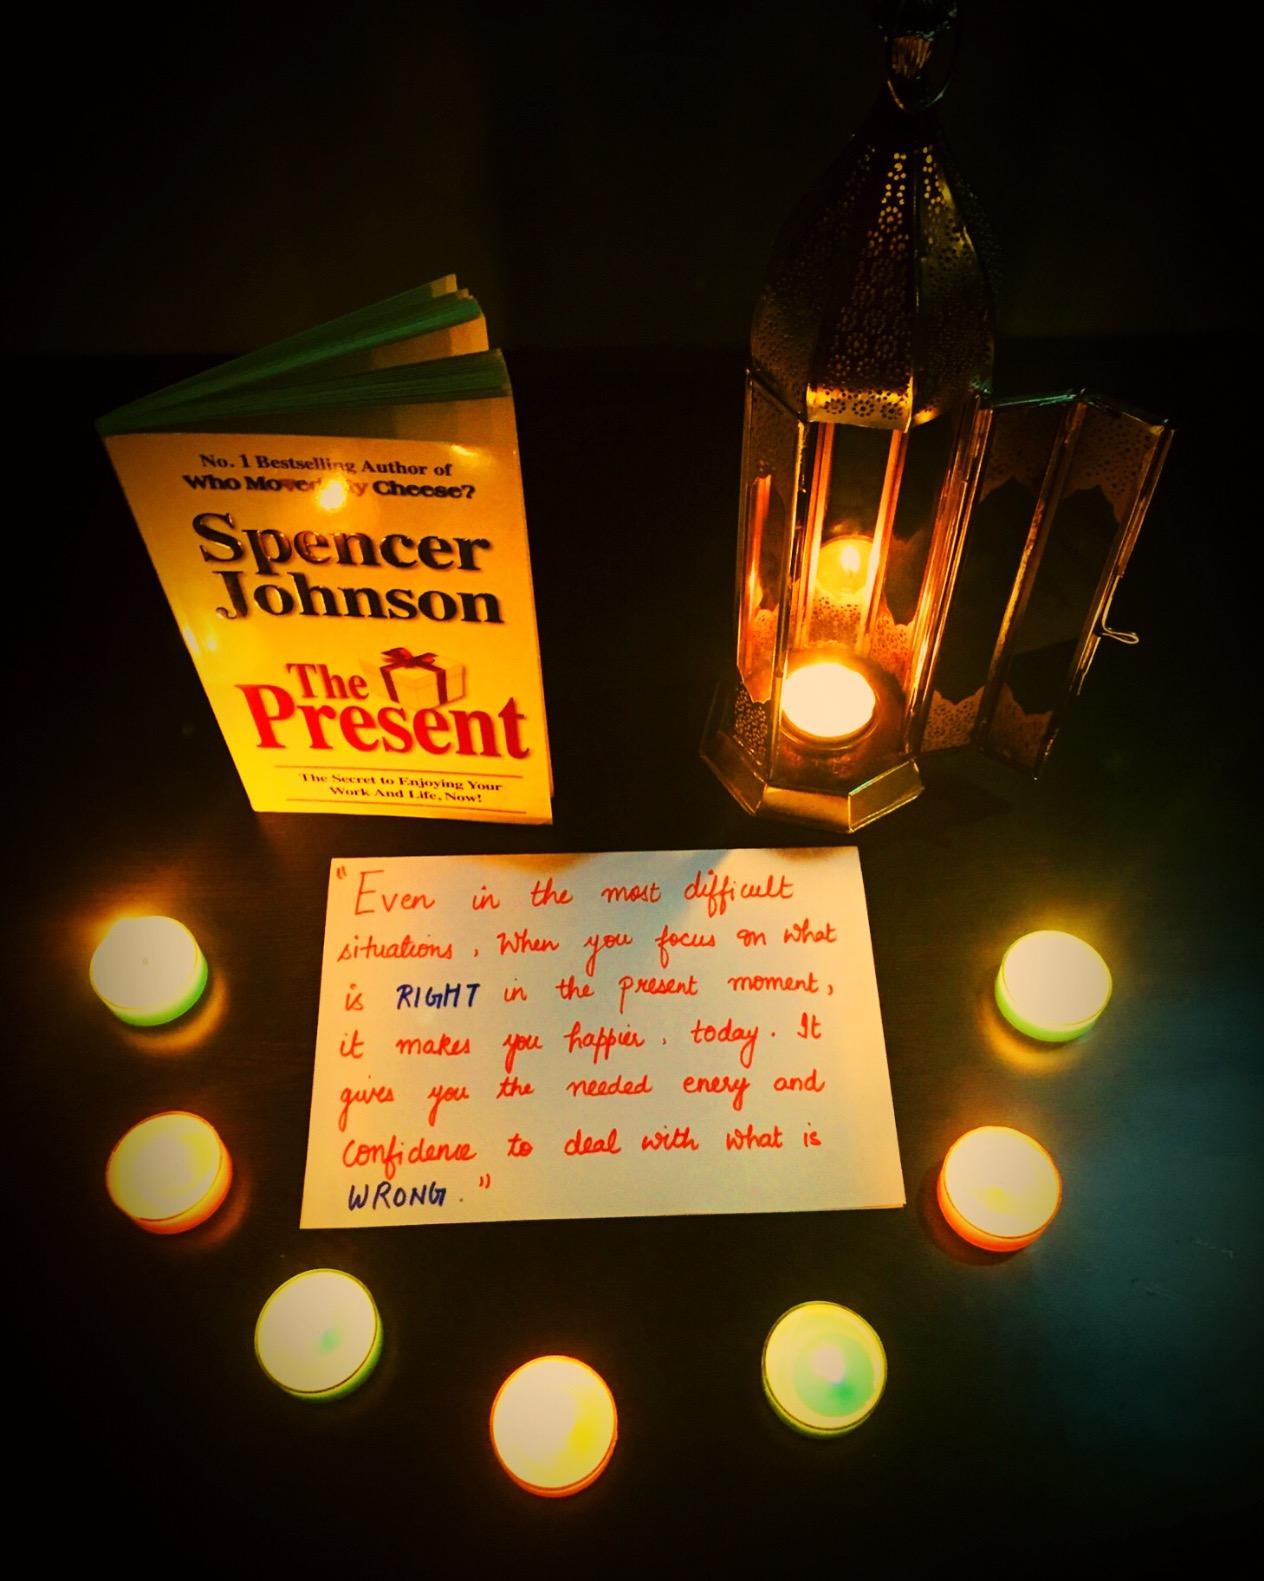 No. 1 Bestselling Author of
Who Moved My Cheese?
Spencer
Johnson
The
Present
The Secret to Enjoying Your
Work And Life, Now!
"Even in the most difficult
situations, When you focus on what
is RIGHT in the present moment,
it makes you happier, today. It
gives you the needed enery and
confidence to deal with what is
WRONG."